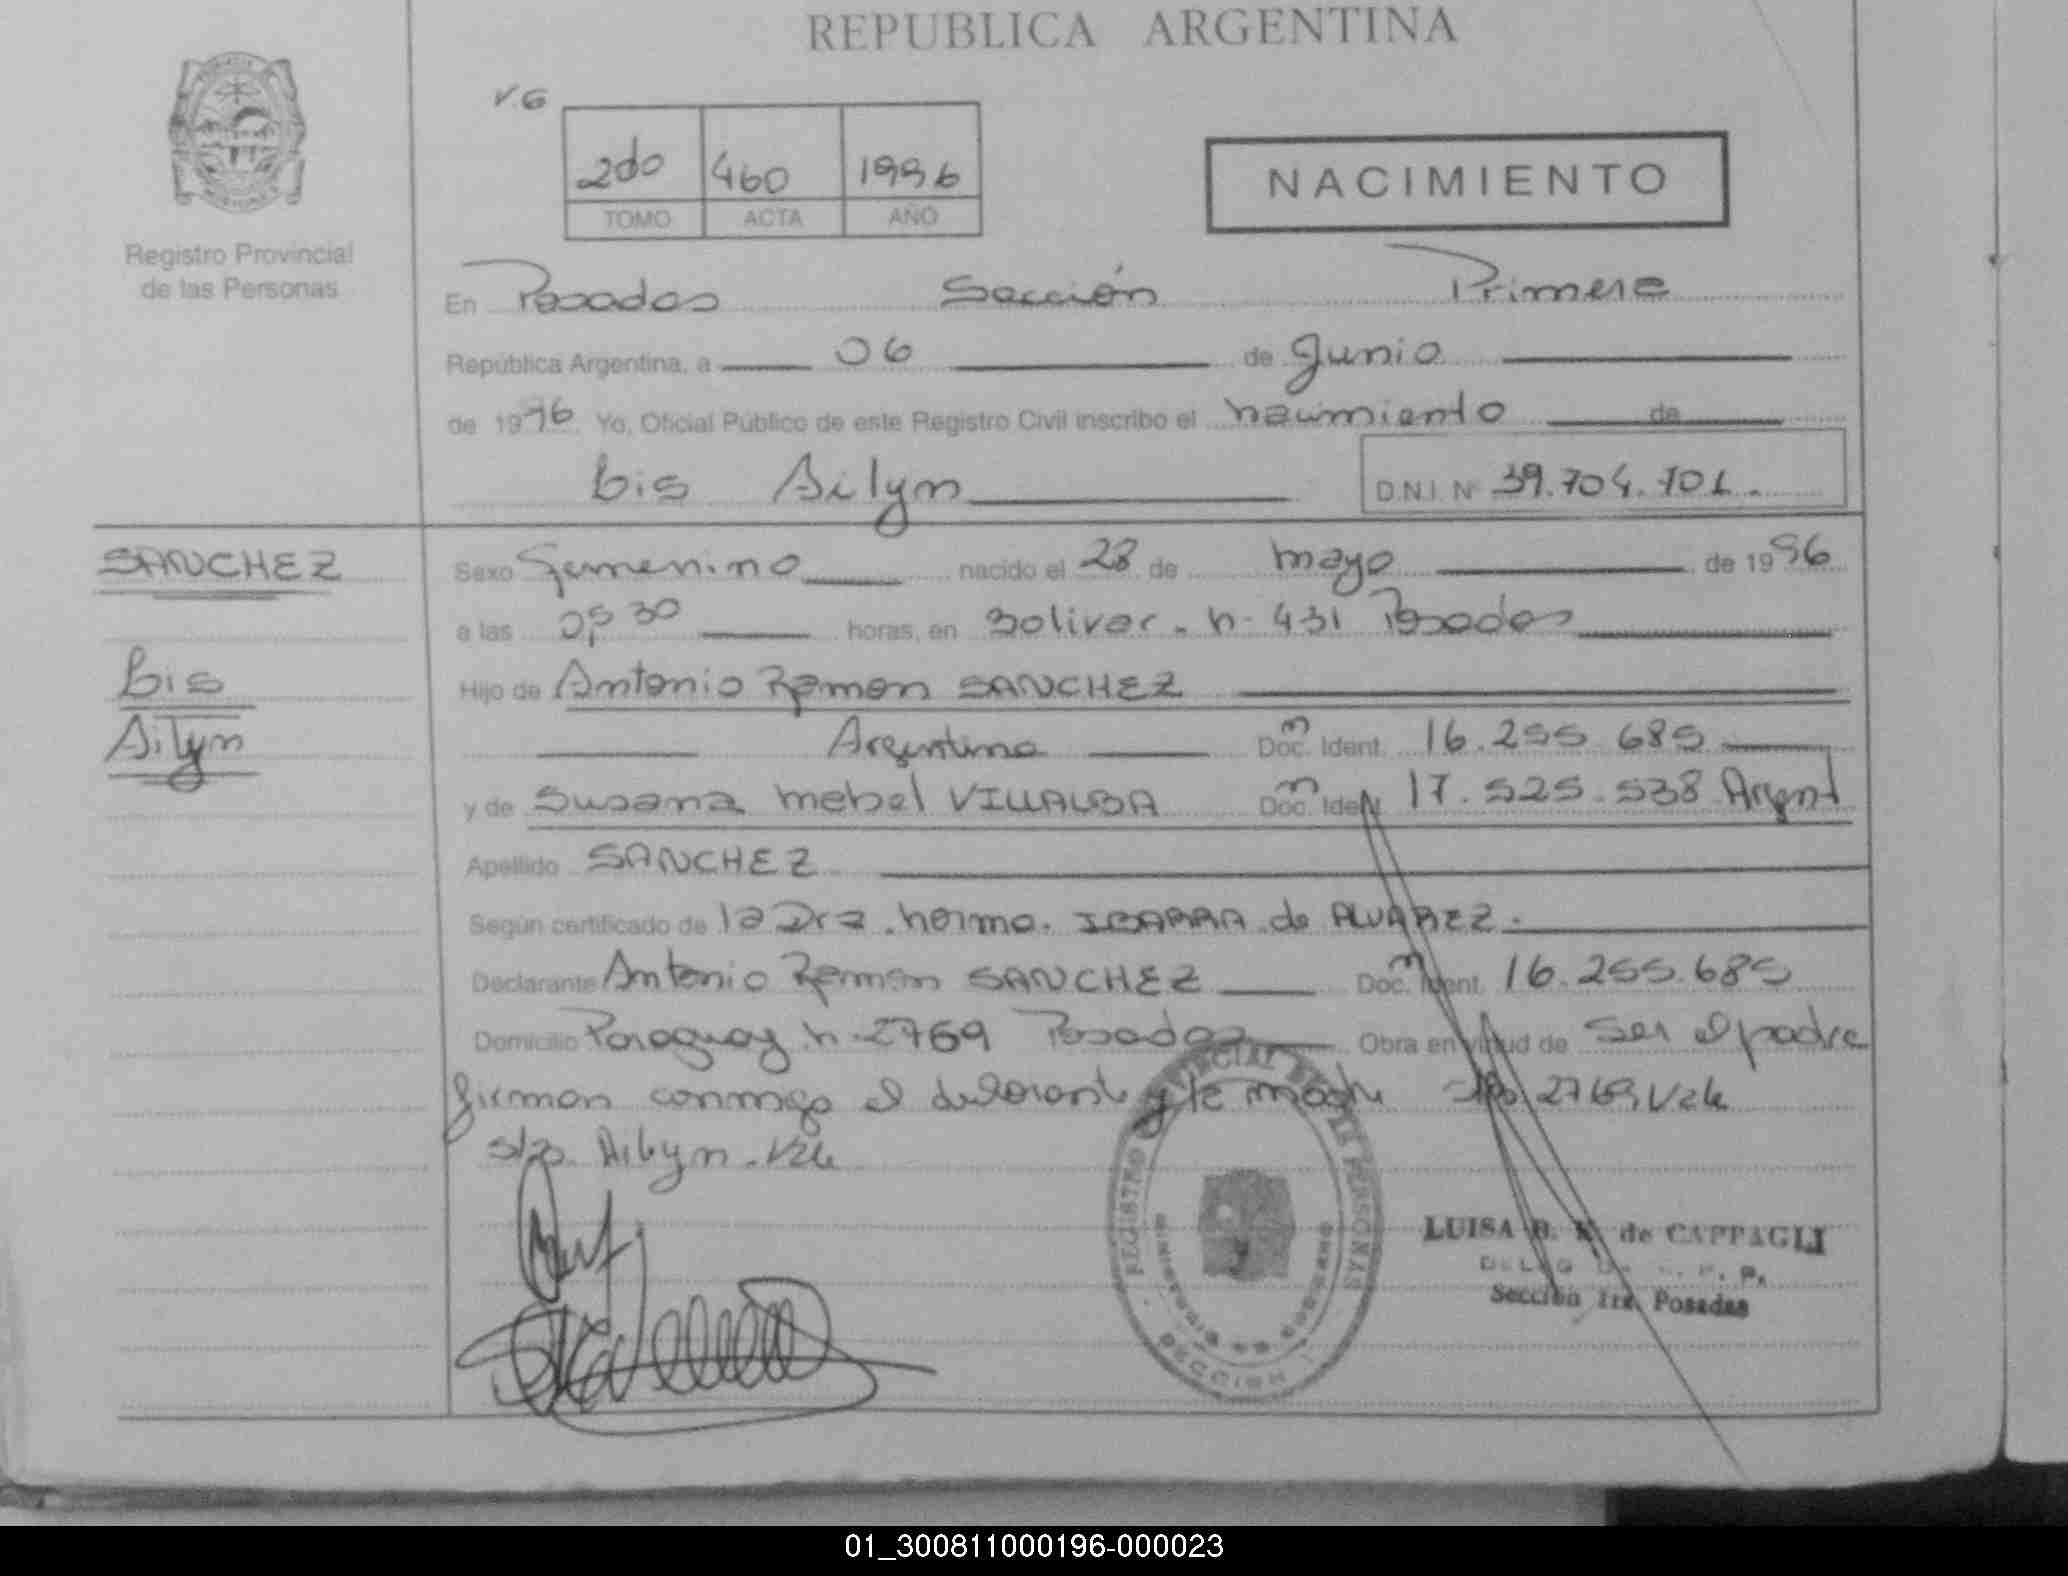 REPUBLICA ARGENTINA
V.G
2do 460 1996
TOMO ACTA AÑO
NACIMIENTO
Registro Provincial
de las Personas
En Posadas Sección Primera
República Argentina, a 06 de Junio
de 1996 Yo, Oficial Público de este Registro Civil inscribo el nacimiento de
Lis Ailyn D.N.I. Nº 39.704.701.
SANCHEZ
Lis
Ailyn
Sexo Femenino nacido el 28 de mayo de 1996
a las 30 horas, en Bolivar. n- 431 Posadas
Hijo de Antonio Ramon SANCHEZ
Argentino Doc. Ident. 16.255.685
y de Susana Mabel VILLALBA Doc. Ident. 17.525.538 Argent
Apellido SANCHEZ
Según certificado de la Dra. Norma. IBARRA de ALVAREZ.
Declarante Antonio Ramon SANCHEZ Doc. Ident. 16.255.685
Domicilio Paraguay n-2769 Posadas Obra en virtud de ser el padre
firman conmigo el declarante y la madre 2769, Vale
s/rp. Ailyn. Vale
REGISTRO PROVINCIAL DE LAS PERSONAS
MINISTERIO DE GOBIERNO
SECCION
LUISA B. de CAPPAGLI
Sección 1ra. Posadas
01_300811000196-000023